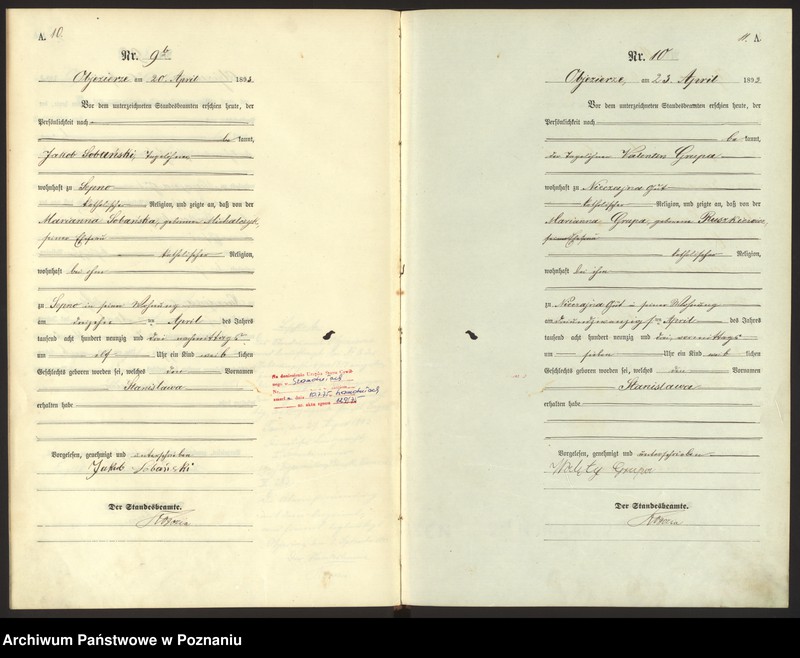 A. 10.
Nr. 9b
Objezierze am 20 April 1893
Vor dem unterzeichneten Standesbeamten erschien heute, der
Persönlichkeit nach
be kannt,
Jakob Sobański,
wohnhaft zu Sepno
katholischer Religion, und zeigte an, daß von der
Marianna Sobańska, geborenen
seiner Ehefrau
katholischer Religion,
wohnhaft bei ihm
zu Sepno in seiner Wohnung
am April des Jahres
tausend acht hundert neunzig und drei nachmittags
um elf Uhr ein Kind weib lichen
Geschlechts geboren worden sei, welches den Vornamen
Stanislawa
erhalten habe
Vorgelesen, genehmigt und unterschrieben
Jakób Sobański
Der Standesbeamte.
Na doniesienie Urzędu Stanu Cywil-
nego w
zmarła dnia
nr. aktu zgonu
11. A.
Nr. 10
Objezierze, am 23 April 1893
Vor dem unterzeichneten Standesbeamten erschien heute, der
Persönlichkeit nach
be kannt,
der Tagelöhner Valenten Grupa
wohnhaft zu Nieczajna Gut
katholischer Religion, und zeigte an, daß von der
Marianna Grupa, geborene
seiner Ehefrau
katholischer Religion,
wohnhaft bei ihm
zu Nieczajna Gut in seiner Wohnung
am dreiundzwanzigsten April des Jahres
tausend acht hundert neunzig und drei vormittags
um sieben Uhr ein Kind weib lichen
Geschlechts geboren worden sei, welches den Vornamen
Stanislawa
erhalten habe
Vorgelesen, genehmigt und unterschrieben
Grupa
Der Standesbeamte.
Archiwum Państwowe w Poznaniu